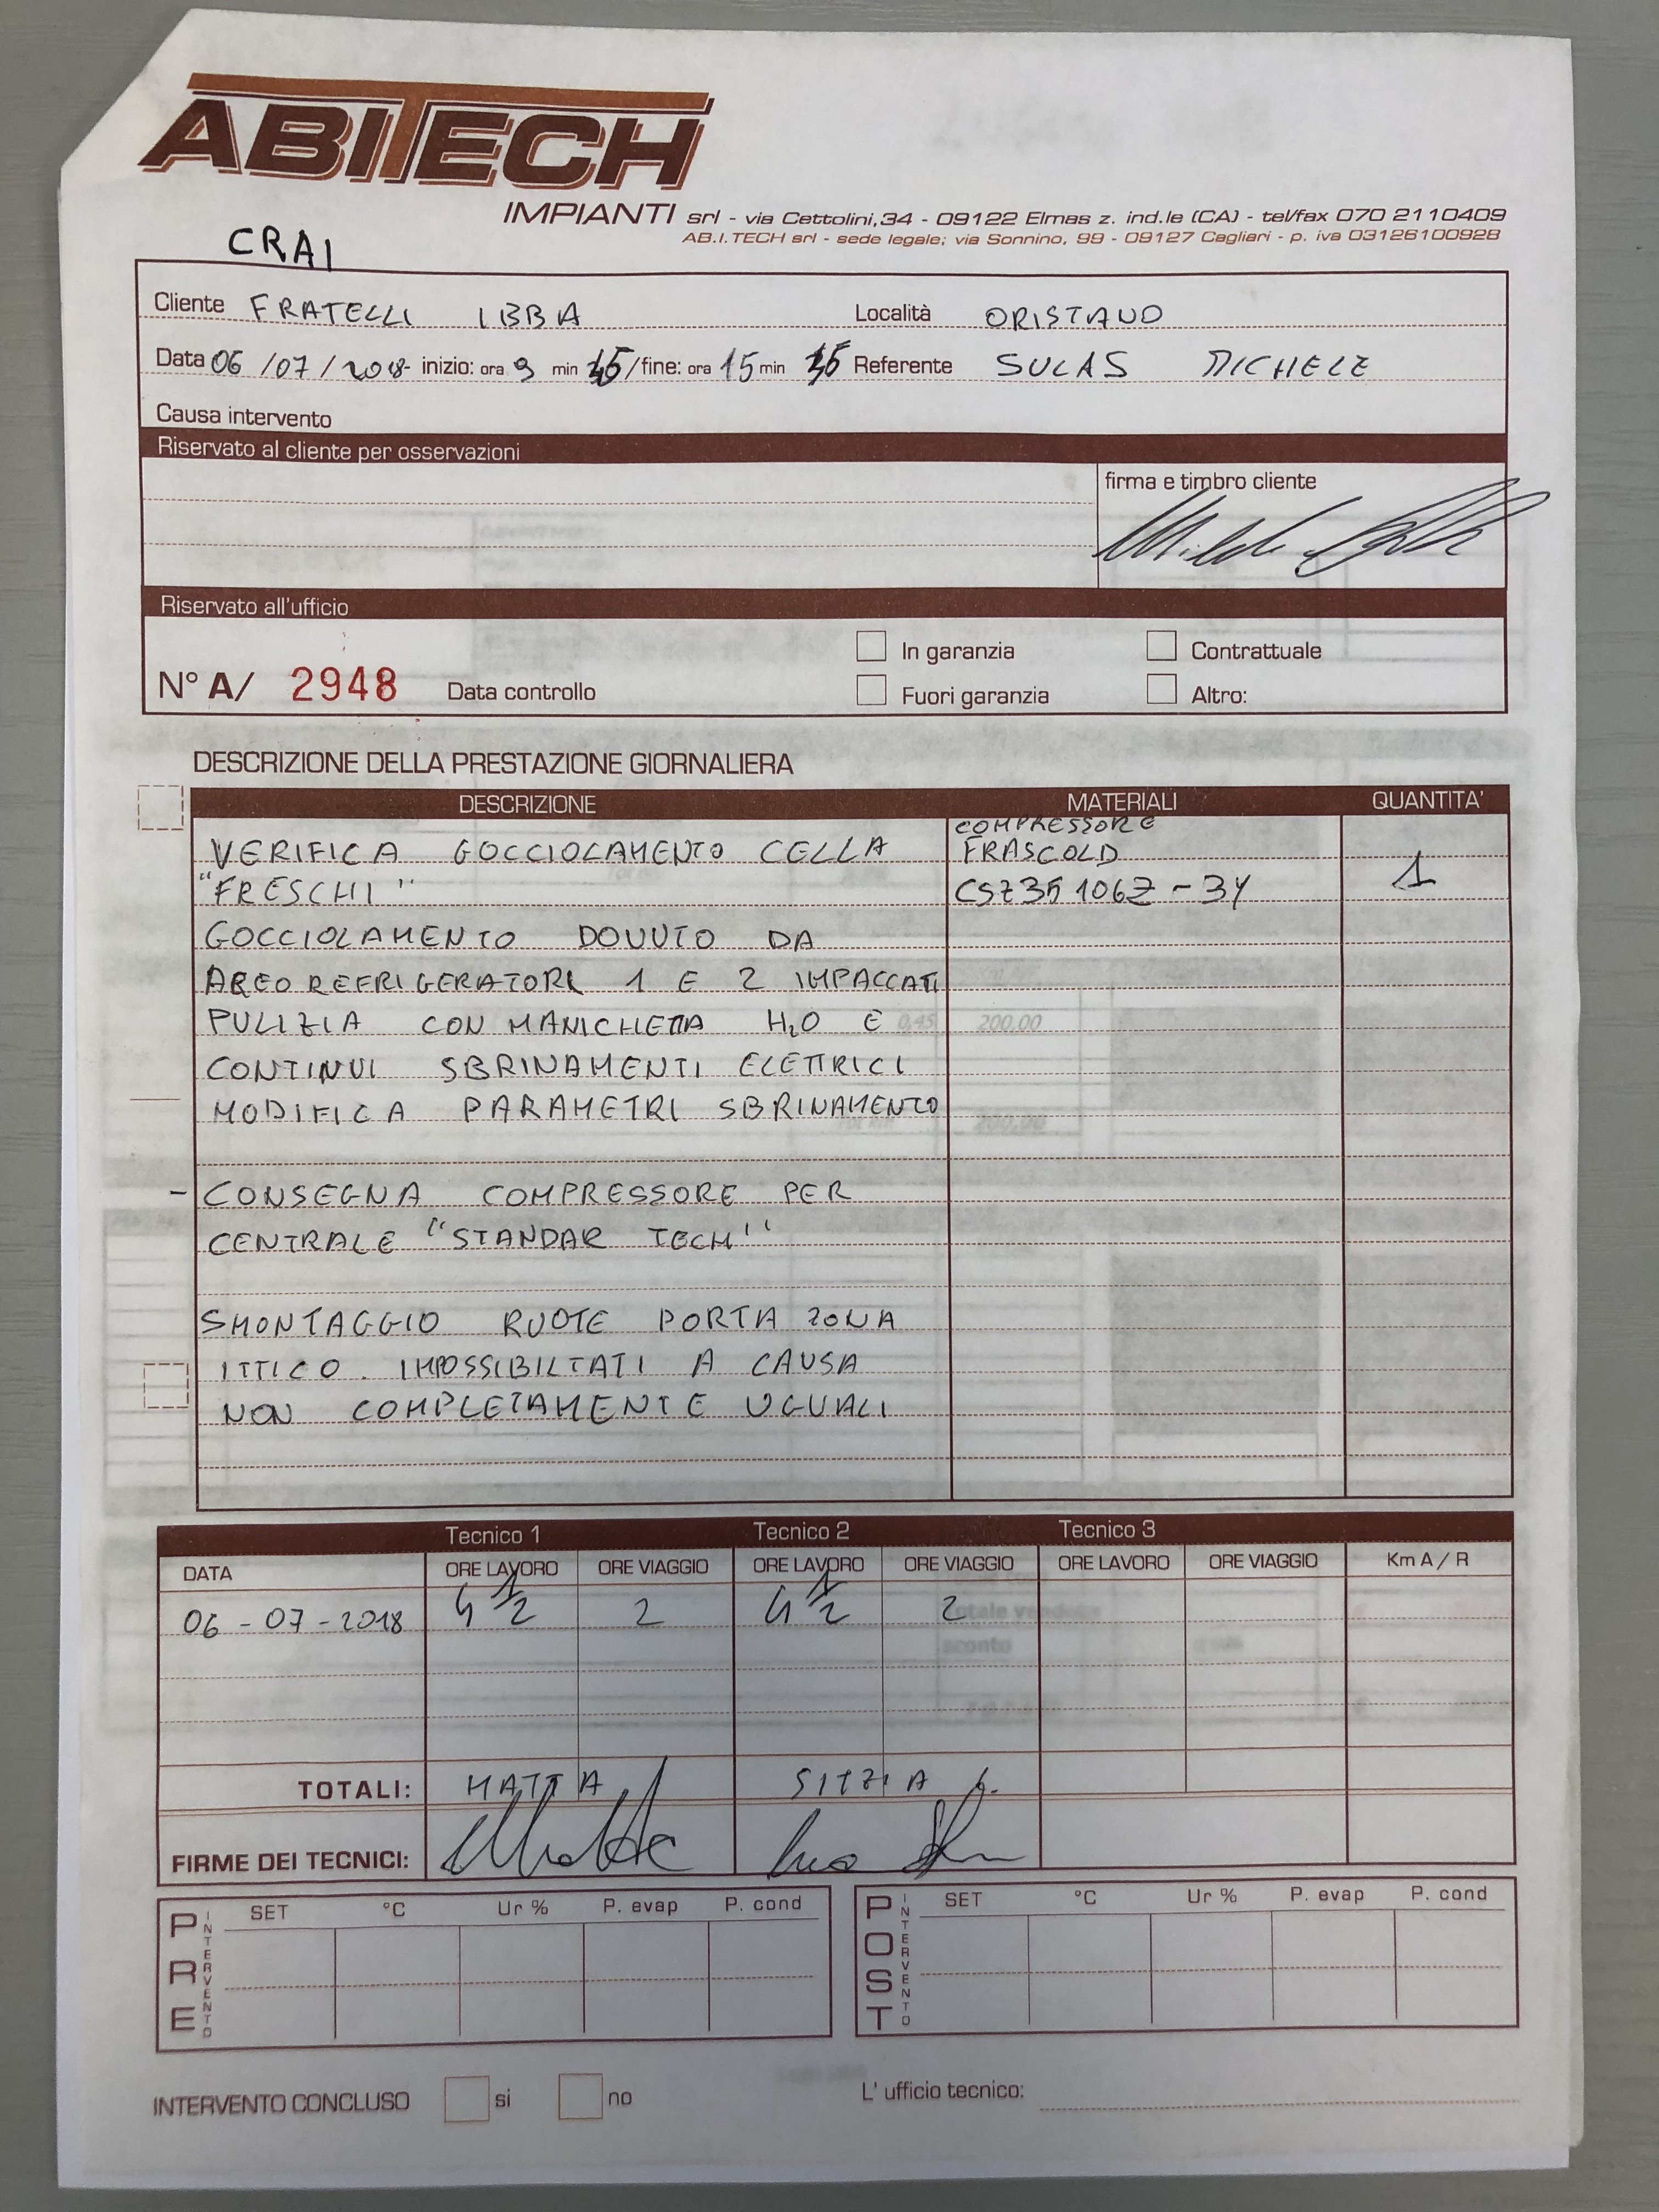 ABITECH
IMPIANTI srl - via Cettolini,34 - 09122 Elmas z. ind.le (CA) - tel/fax 070 2110409
AB.I.TECH srl - sede legale; via Sonnino, 99 - 09127 Cagliari - p. iva 03126100928
CRAI
Cliente FRATELLI IBBA Località ORISTANO
Data 06/07/2018 inizio: ora 9 min /fine: ora 15 min Referente SULAS MICHELE
Causa intervento
Riservato al cliente per osservazioni
firma e timbro cliente
Riservato all'ufficio
In garanzia Contrattuale
N° A/ 2948 Data controllo Fuori garanzia Altro:
DESCRIZIONE DELLA PRESTAZIONE GIORNALIERA
DESCRIZIONE MATERIALI QUANTITA'
COMPRESSORE
VERIFICA GOCCIOLAMENTO CELLA FRASCOLD
"FRESCHI" 1
GOCCIOLAMENTO DOVUTO DA
AREOREFRIGERATORI 1 E 2 IMPACCATI
PULIZIA CON MANICHETTA H2O E
CONTINUI SBRINAMENTI ELETTRICI
MODIFICA PARAMETRI SBRINAMENTO
- CONSEGNA COMPRESSORE PER
CENTRALE "STANDAR TECH"
SMONTAGGIO RUOTE PORTA ZONA
ITTICO. IMPOSSIBILTATI A CAUSA
NON COMPLETAMENTE UGUALI
Tecnico 1 Tecnico 2 Tecnico 3
DATA ORE LAVORO ORE VIAGGIO ORE LAVORO ORE VIAGGIO ORE LAVORO ORE VIAGGIO Km A / R
06 - 07 - 2018 4 1/2 2 4 1/2 2
TOTALI: MATTA SITZIA
FIRME DEI TECNICI:
PRE INTERVENTO SET °C Ur % P. evap P. cond
POST INTERVENTO SET °C Ur % P. evap P. cond
INTERVENTO CONCLUSO si no L' ufficio tecnico: